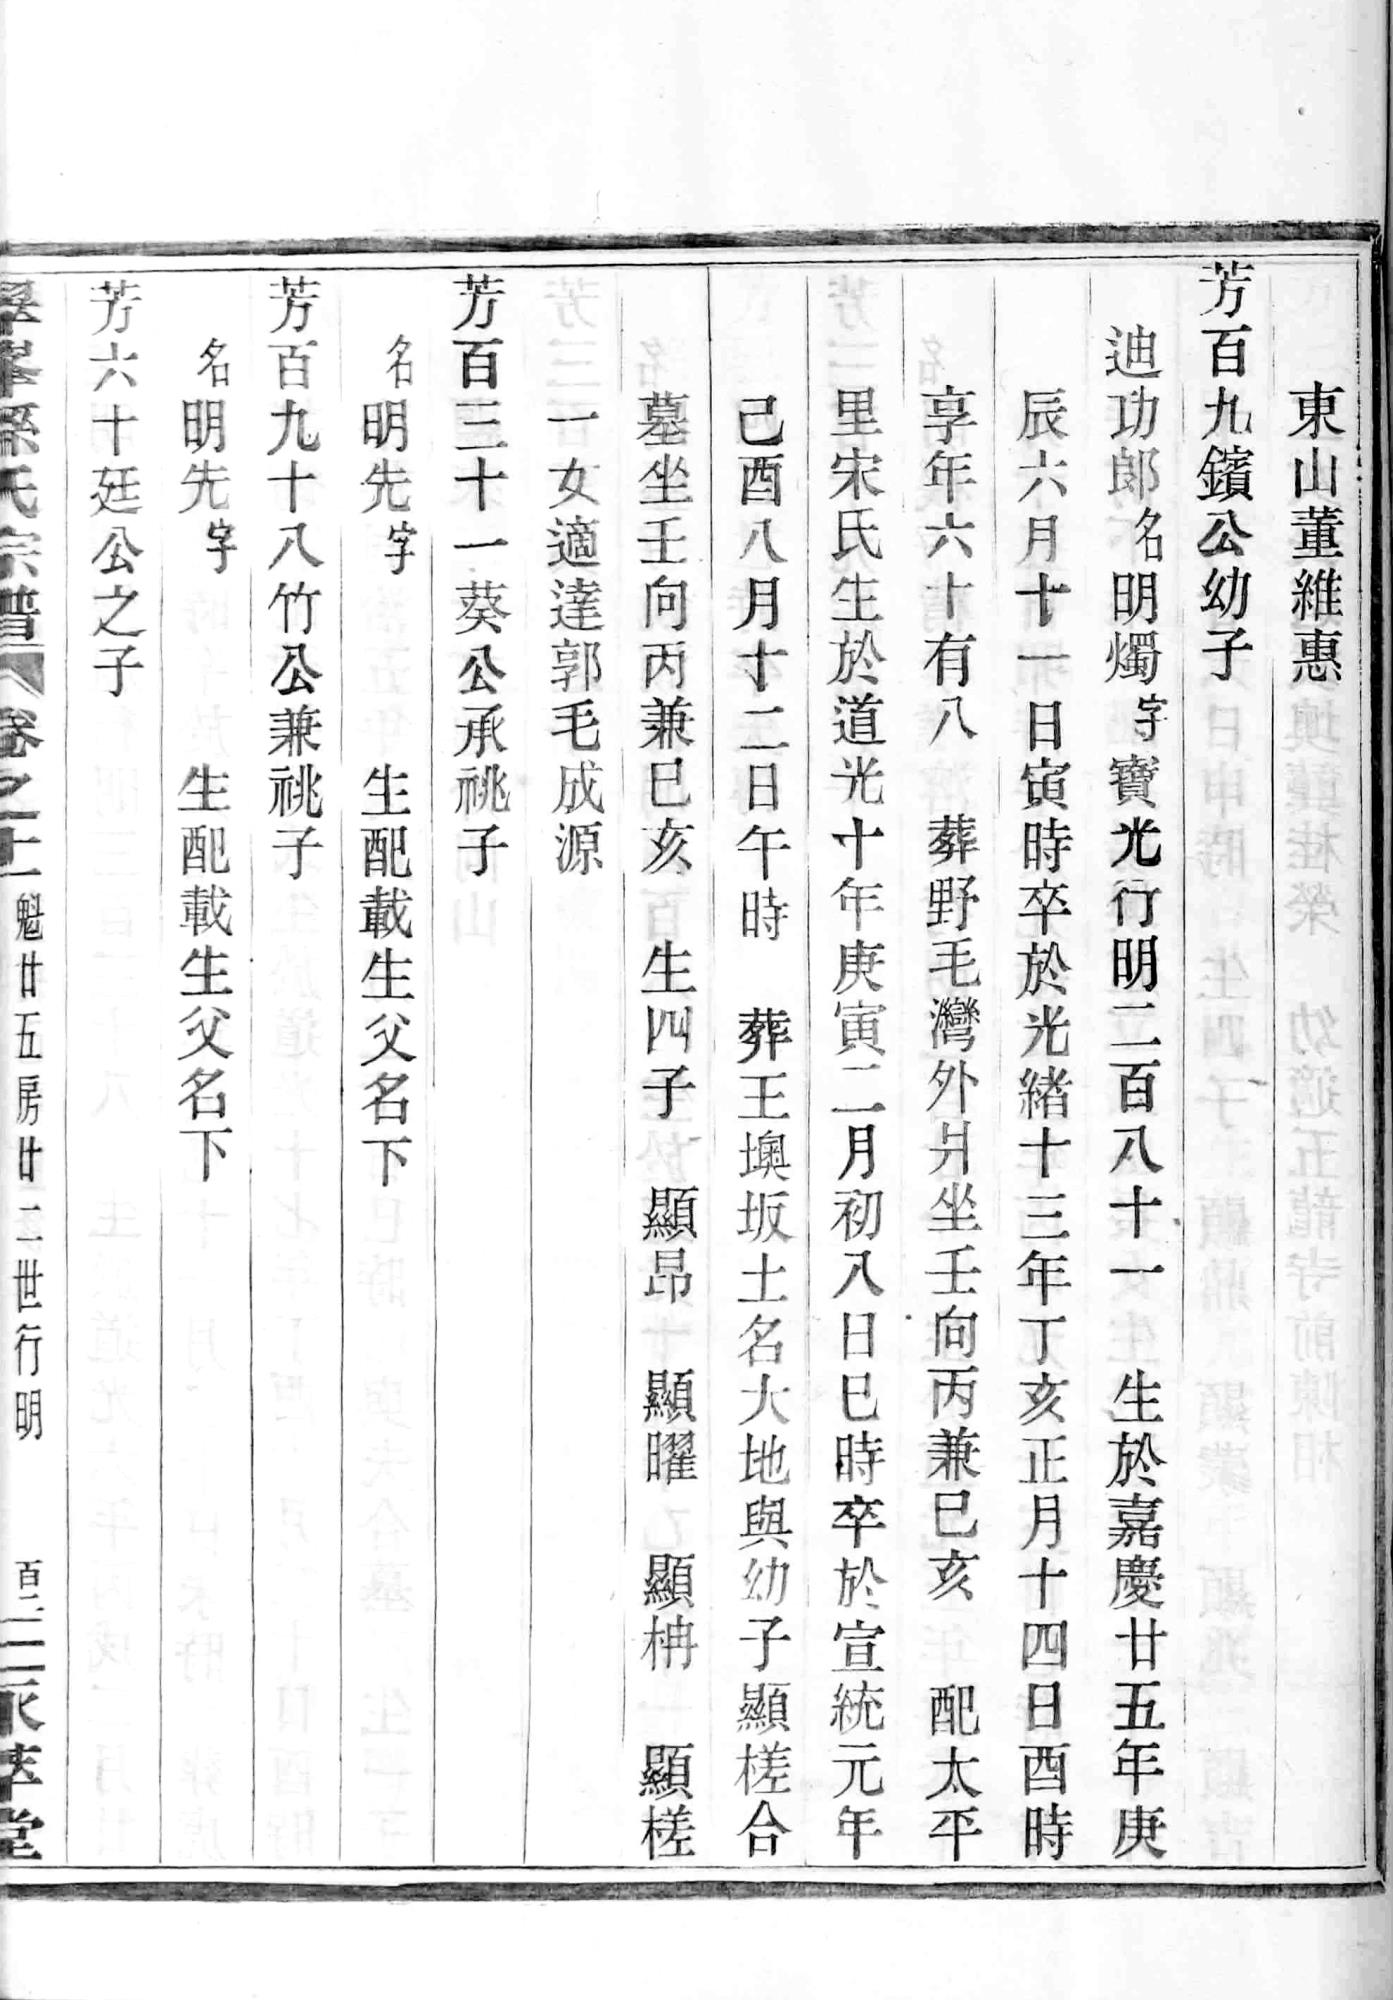 東山董維惠
芳百九鑌公幼子
迪功郎名明燭字寶光行明二百八十一　生於嘉慶廿五年庚
辰六月十一日寅時卒於光緒十三年丁亥正月十四日酉時
享年六十有八　葬野毛灣外爿坐壬向丙兼巳亥　配太平
里宋氏生於道光十年庚寅二月初八日巳時卒於宣統元年
己酉八月十二日午時　葬王墺坂土名大地與幼子顯槎合
墓坐壬向丙兼巳亥　生四子　顯昂　顯曜　顯枬　顯槎
一女適達郭毛成源
芳百三十一葵公承祧子
名明先字　　　生配載生父名下
芳百九十八竹公兼祧子
名明先字　　　生配載生父名下
芳六十廷公之子
孫氏宗譜　卷之十一　魁廿五房廿二世行明　百二十二　永萃堂